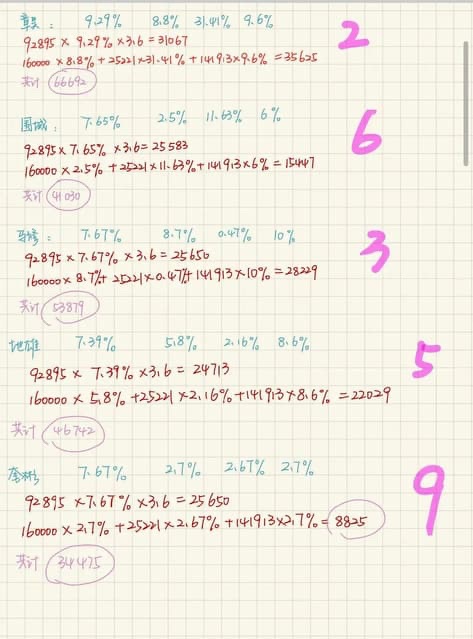 章昊: 9.29% 8.8% 31.41% 9.6%
92895 × 9.29% ×3.6 = 31067
2
160000 × 8.8% + 25221×31.41% + 141913×9.6% = 35625
共计 66692
围城: 7.65% 2.5% 11.63% 6%
92895 × 7.65% ×3.6= 25583
6
160000 × 2.5% + 25221×11.63%+141913×6% = 15447
共计 41030
7.67% 8.7% 0.47% 10%
92895 × 7.67% ×3.6 = 25650
3
160000×8.7%+ 25221×0.47%+141913×10% = 28229
共计 53879
地雄 7.39% 5.8% 2.16% 8.6%
92895 × 7.39% ×3.6 = 24713
5
160000 × 5.8% +25221×2.16% +141913×8.6% = 22029
共计 46742
奎彬 7.67% 2.7% 2.67% 2.7%
92895 ×7.67% ×3.6 = 25650
9
160000 ×2.7% +25221×2.67% +141913×2.7%= 8825
共计 34475